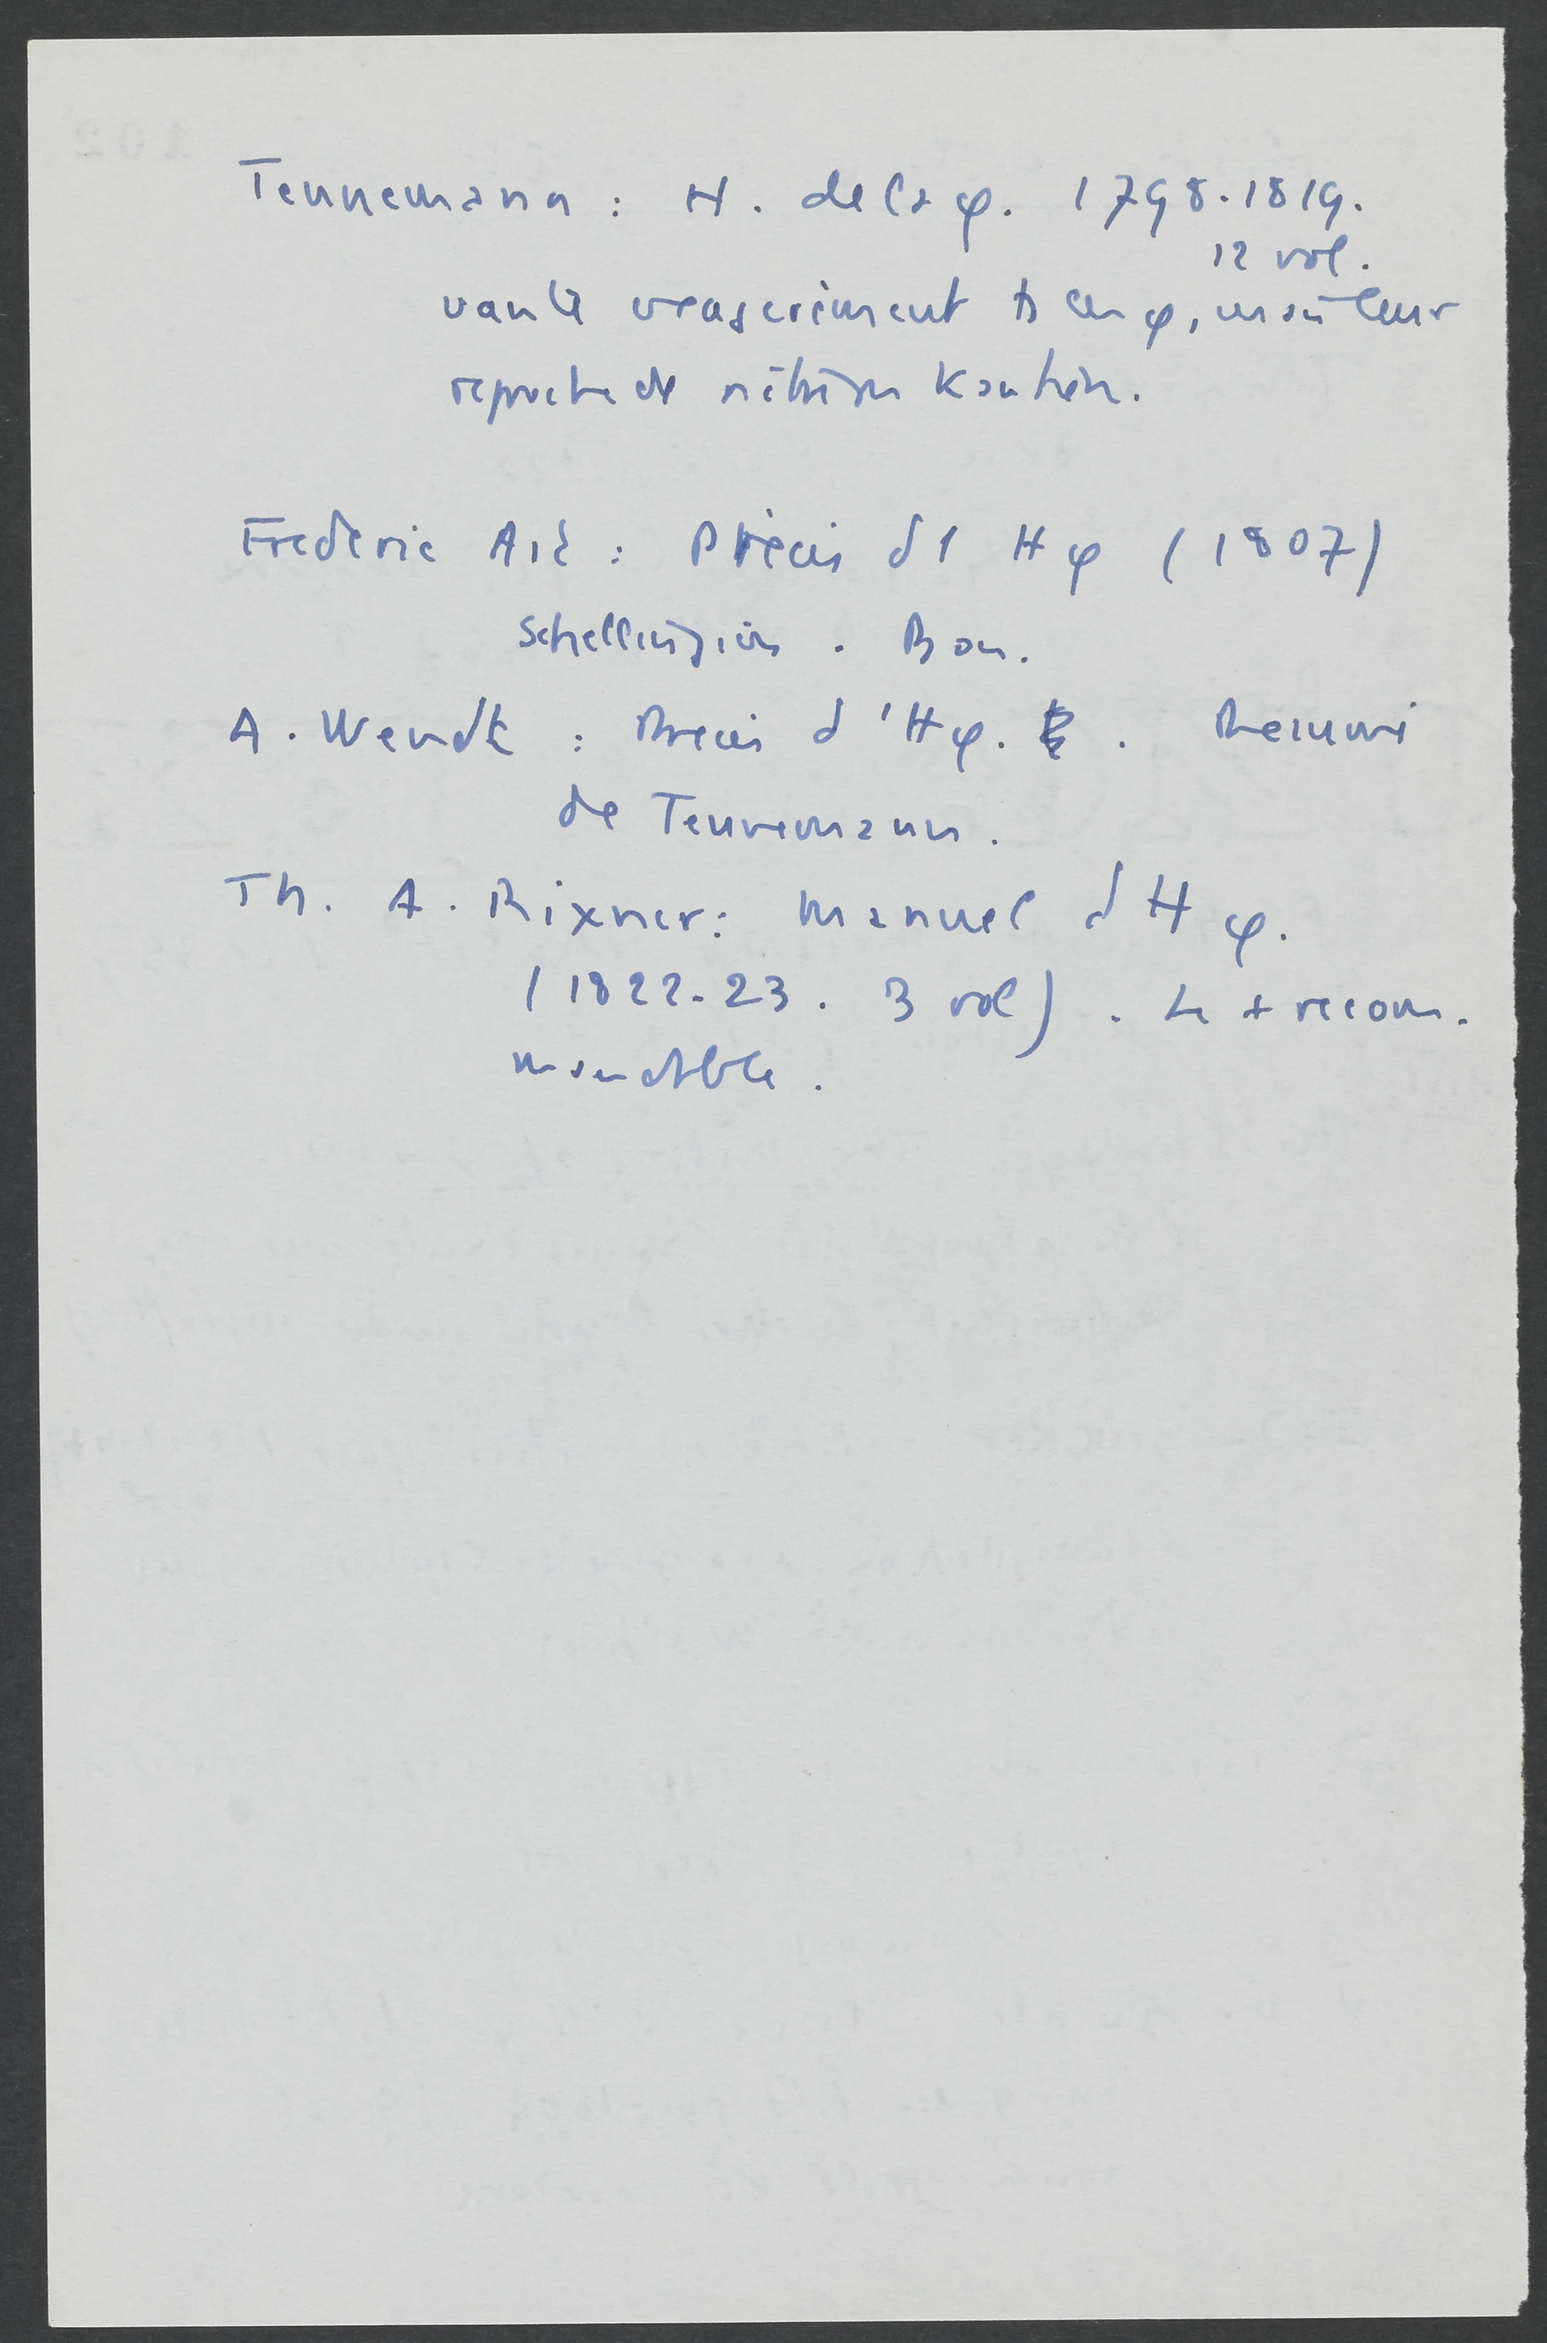 Tennemann : H. de la φ. 1798.1819.
12 vol.
vante exagérément ts les φ, mais leur
reproche de n'être pas Kantien.
Frederic Ast : Précis d l'Hφ (1807)
Schellingien. Bon.
A. Wendt : Precis d'Hφ. . Resumé
de Tennemann.
Th. A. Rixner : Manuel d Hφ.
(1822-23. 3 vol). Le + recom.
mandable.